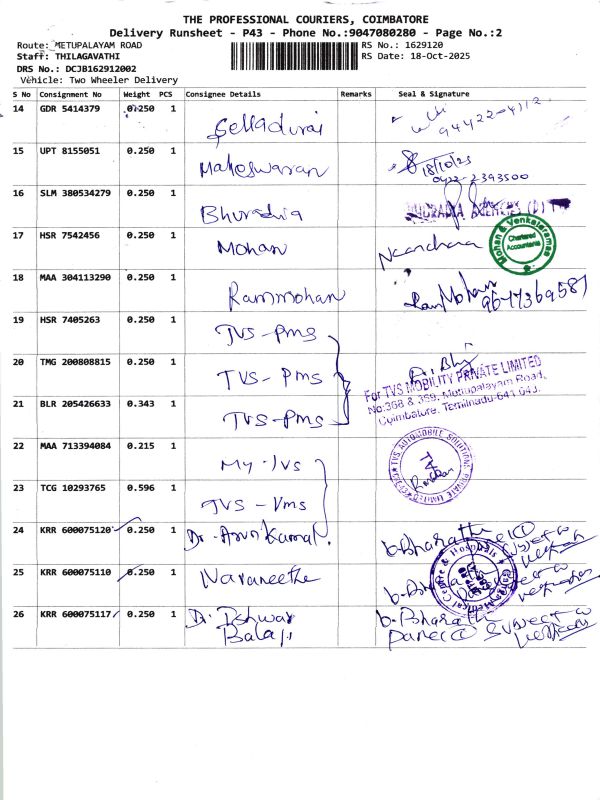 THE PROFESSIONAL COURIERS, COIMBATORE
Delivery Runsheet - P43 - Phone No.:9047080280 - Page No.:2
Route: METUPALAYAM ROAD RS No.: 1629120
Staff: THILAGAVATHI RS Date: 18-Oct-2025
DRS No.: DCJB162912002
Vehicle: Two Wheeler Delivery
S No Consignment No Weight PCS Consignee Details Remarks Seal & Signature
14 GDR 5414379 0.250 1 Selladurai 94422-4112
15 UPT 8155051 0.250 1 Maheswaran 18/10/25
0422-2393500
16 SLM 380534279 0.250 1 Bhuradia
17 HSR 7542456 0.250 1 Mohan Mohan & Venkataraman Chartered Accountants
18 MAA 304113290 0.250 1 Rammohan Ram Mohan
9677369587
19 HSR 7405263 0.250 1 TVS-PMS
20 TMG 200808815 0.250 1 TVS-PMS
For TVS MOBILITY PRIVATE LIMITED
No:368 & 369, Mettupalayam Road,
Coimbatore, Tamilnadu-641 043.
21 BLR 205426633 0.343 1 TVS-PMS
22 MAA 713394084 0.215 1 My-TVS TVS AUTOMOBILE SOLUTIONS PRIVATE LIMITED
23 TCG 10293765 0.596 1 TVS-Vms
24 KRR 600075120 0.250 1 Dr. Arun Kamal. b-Bharathi
subject to
25 KRR 600075110 0.250 1 Navaneetha
Medical Centre & Hospitals
26 KRR 600075117 0.250 1 Dr. Ishwar b-Bharathi
Balaji Parcel subject to